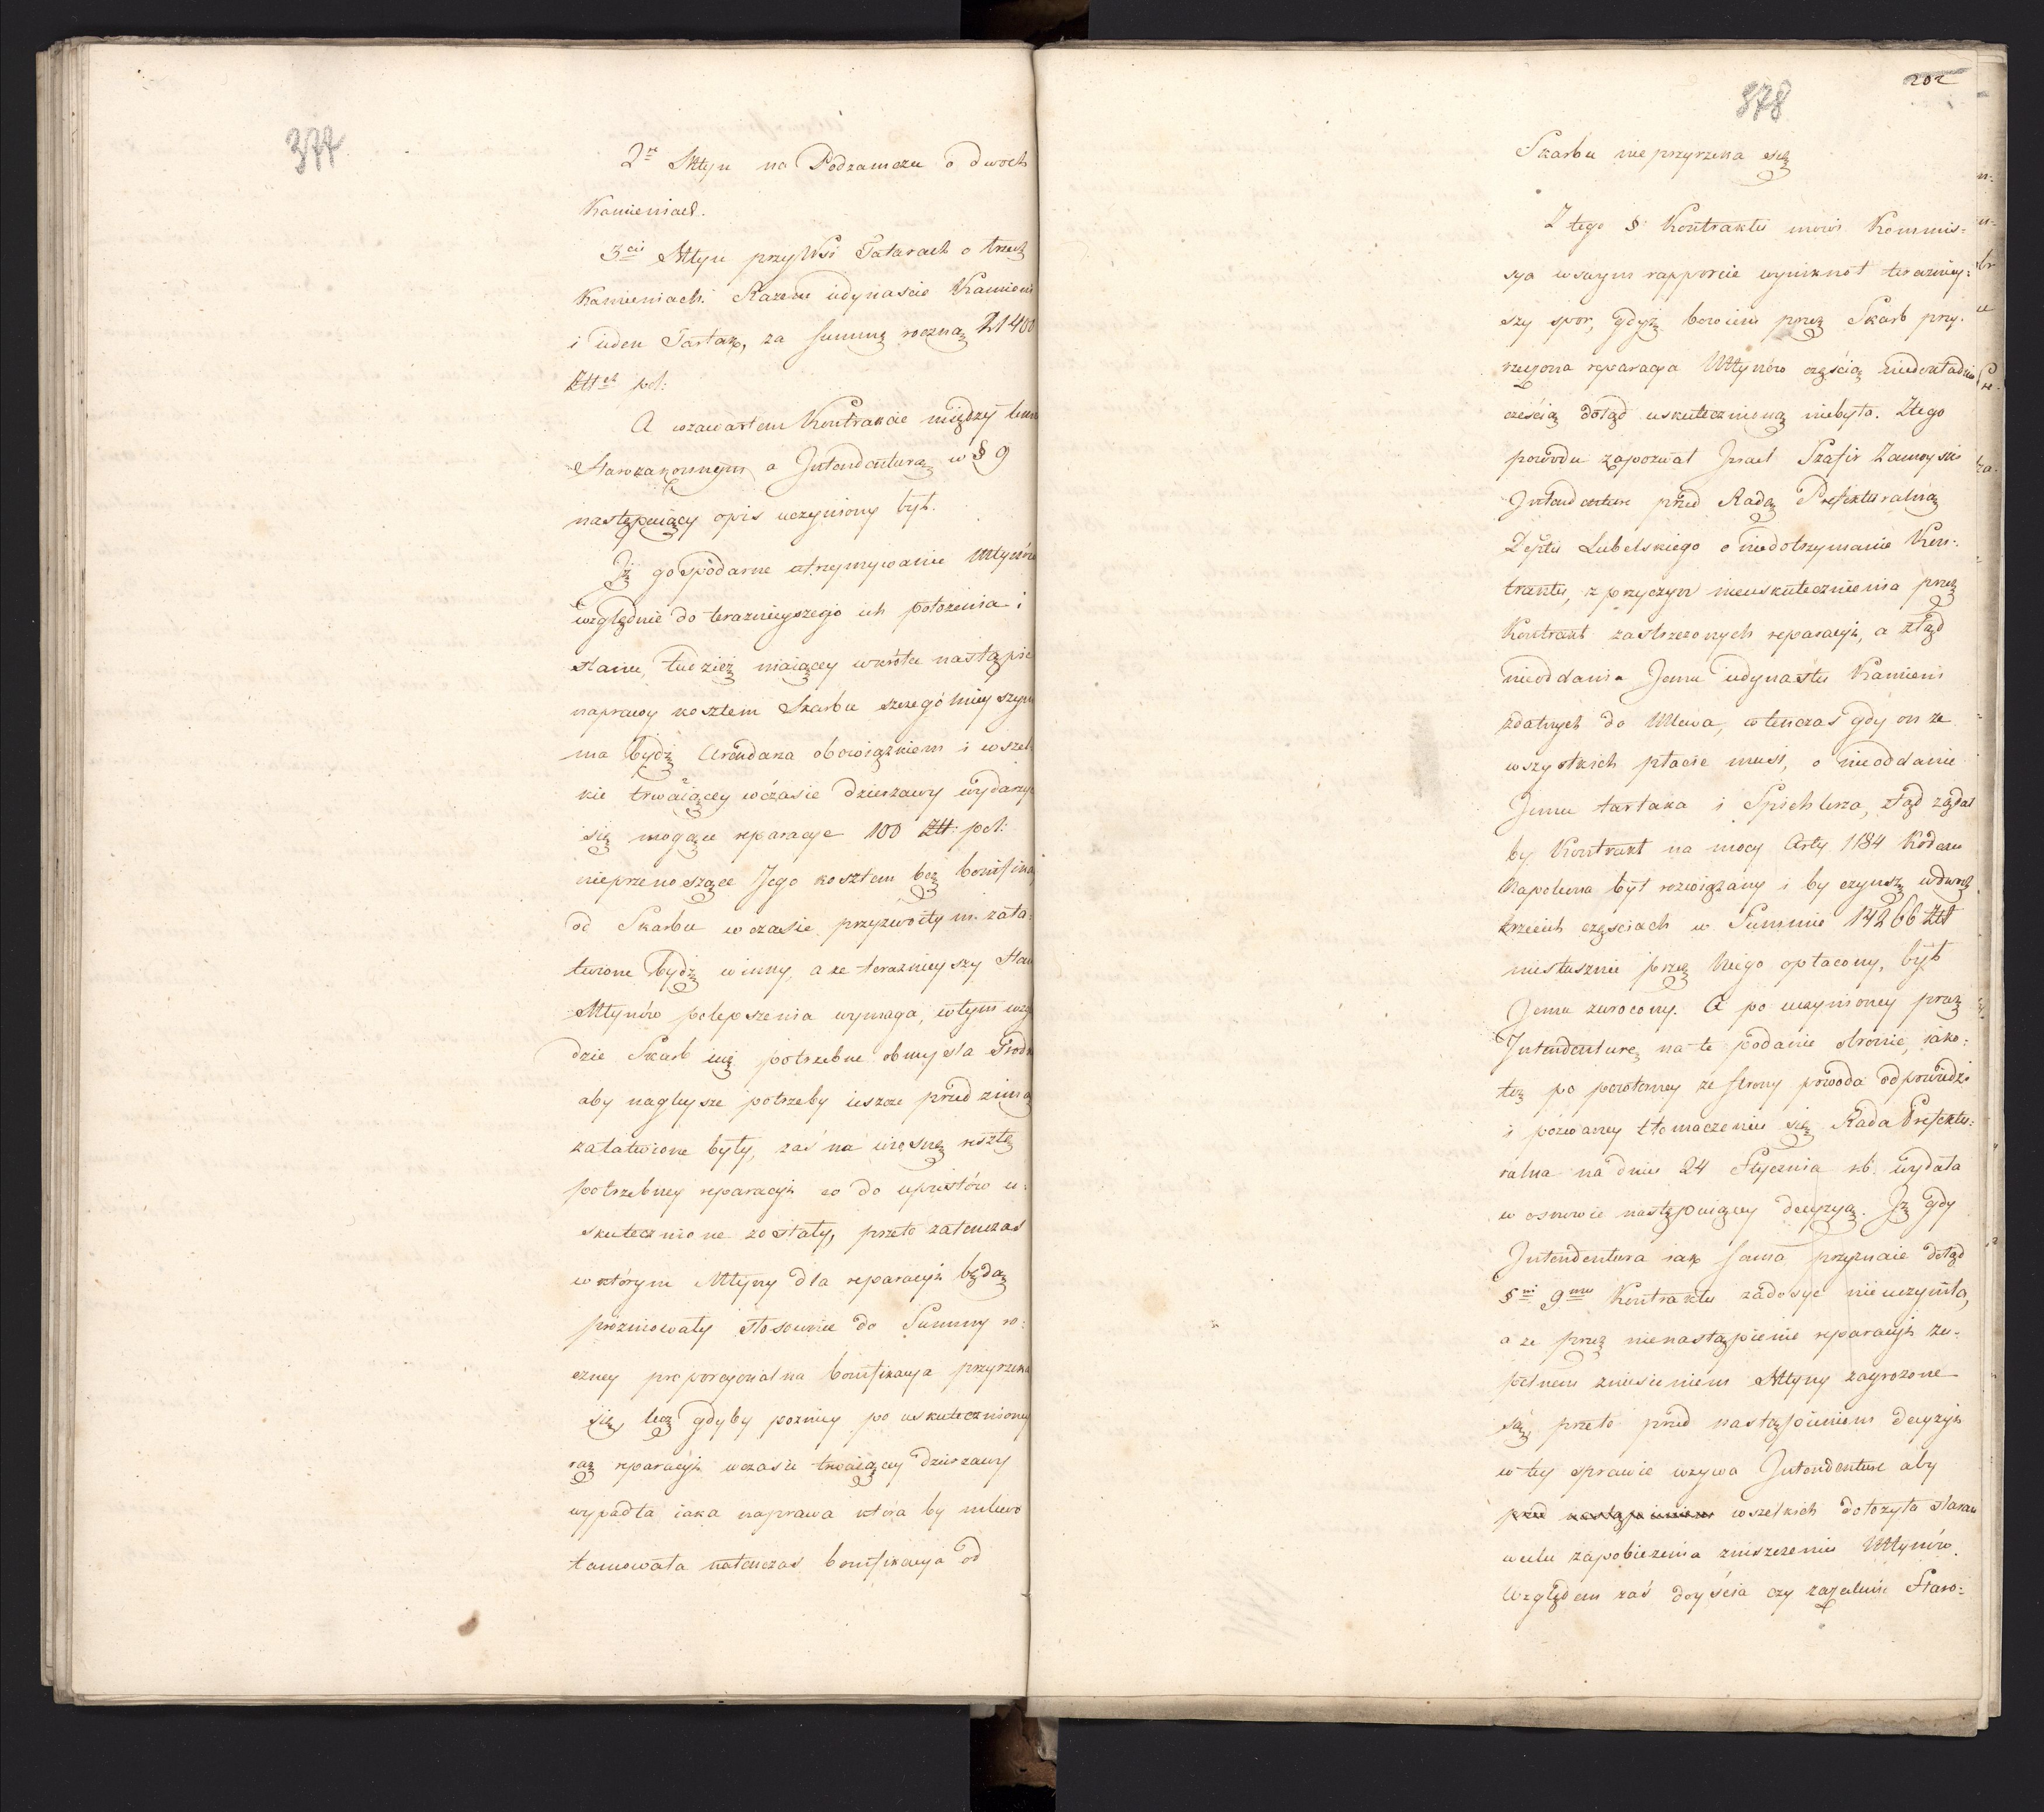 377
2re Młyn na Podzamczu o dwoch
Kamieniach.
3ci Młyn przy Wsi Tatarach o trzech
Kamieniach. Razem iedynascie Kamieni
i ieden Tartak, za summę roczną 21400
Złłch pol:
A w zawartem Kontrakcie między tem
Starozakonnym a Intendenturą w § 9
następuiący opis uczyniony był.
Iż gospodarne utrzymywanie Młynów
względnie do teraznieyszego ich położenia i
stanu, tudzież maiącey wkrótce nastąpić
naprawy kosztem Skarbu szczegolnieyszym
ma bydź Arendarza obowiązkiem i wszel
kie trwaiącey w czasie dzierzawy wydarzyć
się mogące reparacye 100 Złł: pol:
nieprzenoszące Jego kosztem bez bonifika
od Skarbu w czasie przyzwoitym zała-
twione bydź winny, a że teraznieyszy stan
Młynów polepszenia wymaga, w tym wzgę
dzie Skarb iuż potrzebne obmyśla srodki
aby nagleysze potrzeby ieszcze przed zimą
załatwione były, zaś na wiosnę resztę
potrzebney reparacyi co do upustów u-
skutecznione zostały, przeto za ten czas
w którym Młyny dla reparacyi będą
próżnowały stosownie do Summy ro-
czney proporcyonalna bonifikacya przyrzeka
się, lecz gdyby pozniey po uskutecznioney
raz reparacyi w czasie trwaiącey dzierzawy
wypadła iaka naprawa ktora by mliwo
tamowała natenczas bonifikacya od
202
378
Skarbu nie przyrzeka się
Z tego § Kontraktu mowi Kommis-
sya w swym rapporcie wyniknoł terazniey-
szy spor, gdyż bowiem przez Skarb przy-
rzeczona reparacya Młynów częścią niedokładnie
cześcią dotąd uskutecznioną niebyła. Z tego
powodu zapozwał Jsrael Szafir Zamoyski
Intendenture przed Radą Prefekturalną
Deptu Lubelskiego o niedotrzymanie Kon-
traktu, z przyczyn nieuskutecznienia przez
Kontrakt zastrzezonych reparacyi, a ztąd
nieoddania Jemu iedynastu Kamieni
zdatnych do Mlewa, wtenczas gdy on ze
wszystkich płacić musi, o nieoddanie
Jemu tartaka i Spichlerza, ztąd żądał
by Kontrakt na mocy Arty 1184 Kodexu
Napoleona był rozwiązany i by czynsz w dwóch
trzecich częściach w Summie 14266 Złł
niesłusznie przez Niego opłacony, był
Jemu zwrocony. A po uczynioney przez
Intendenturę na te podanie obronie, iako-
też po powtorney ze strony powoda odpowiedzi
i pozwaney tłomaczeniu się Rada Prefektu-
ralna na dniu 24 Stycznia rb. wydała
w osnowie następuiącey decyzyą. Jż gdy
Intendentura iak sama przyznaie dotąd
§wi 9mu Kontraktu zadosyć nie uczyniła,
a że przez nienastąpienie reparacyi zu-
pełnem zniesieniem Młyny zagrozone
są, przeto przed nastąpieniem decyzyi
w tey sprawie wzywa Intendenturę aby
przed nastąpieniem wszelkich dołożyła staran
w celu zapobieżenia zniszczeniu Młynów.
Względem zaś doyścia czy zażalenie Staro-